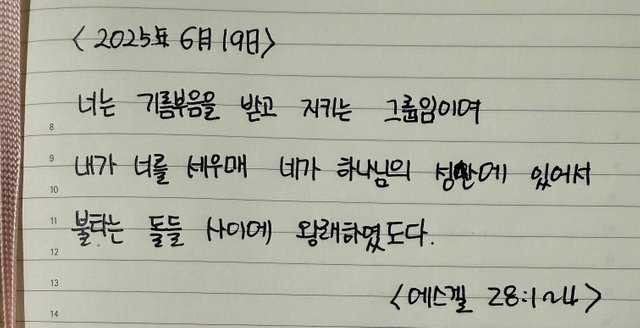 <2025年 6月 19日>
너는 기름부음을 받고 지키는 그룹임이여
8
내가 너를 세우매 네가 하나님의 성산에 있어서
9
10
불타는 돌들 사이에 왕래하였도다.
11
12
<에스겔 28:1~24>
13
14